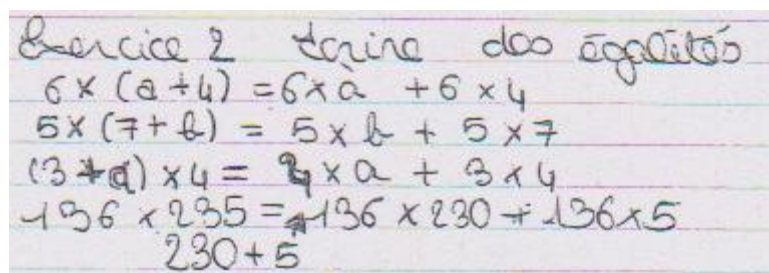 Exercice 2 écrire des égalités
6 × (a + 4) = 6 × a + 6 × 4
5 × (7 + b) = 5 × b + 5 × 7
(3 + a) × 4 = 4 × a + 3 × 4
136 × 235 = 136 × 230 + 136 × 5
230 + 5